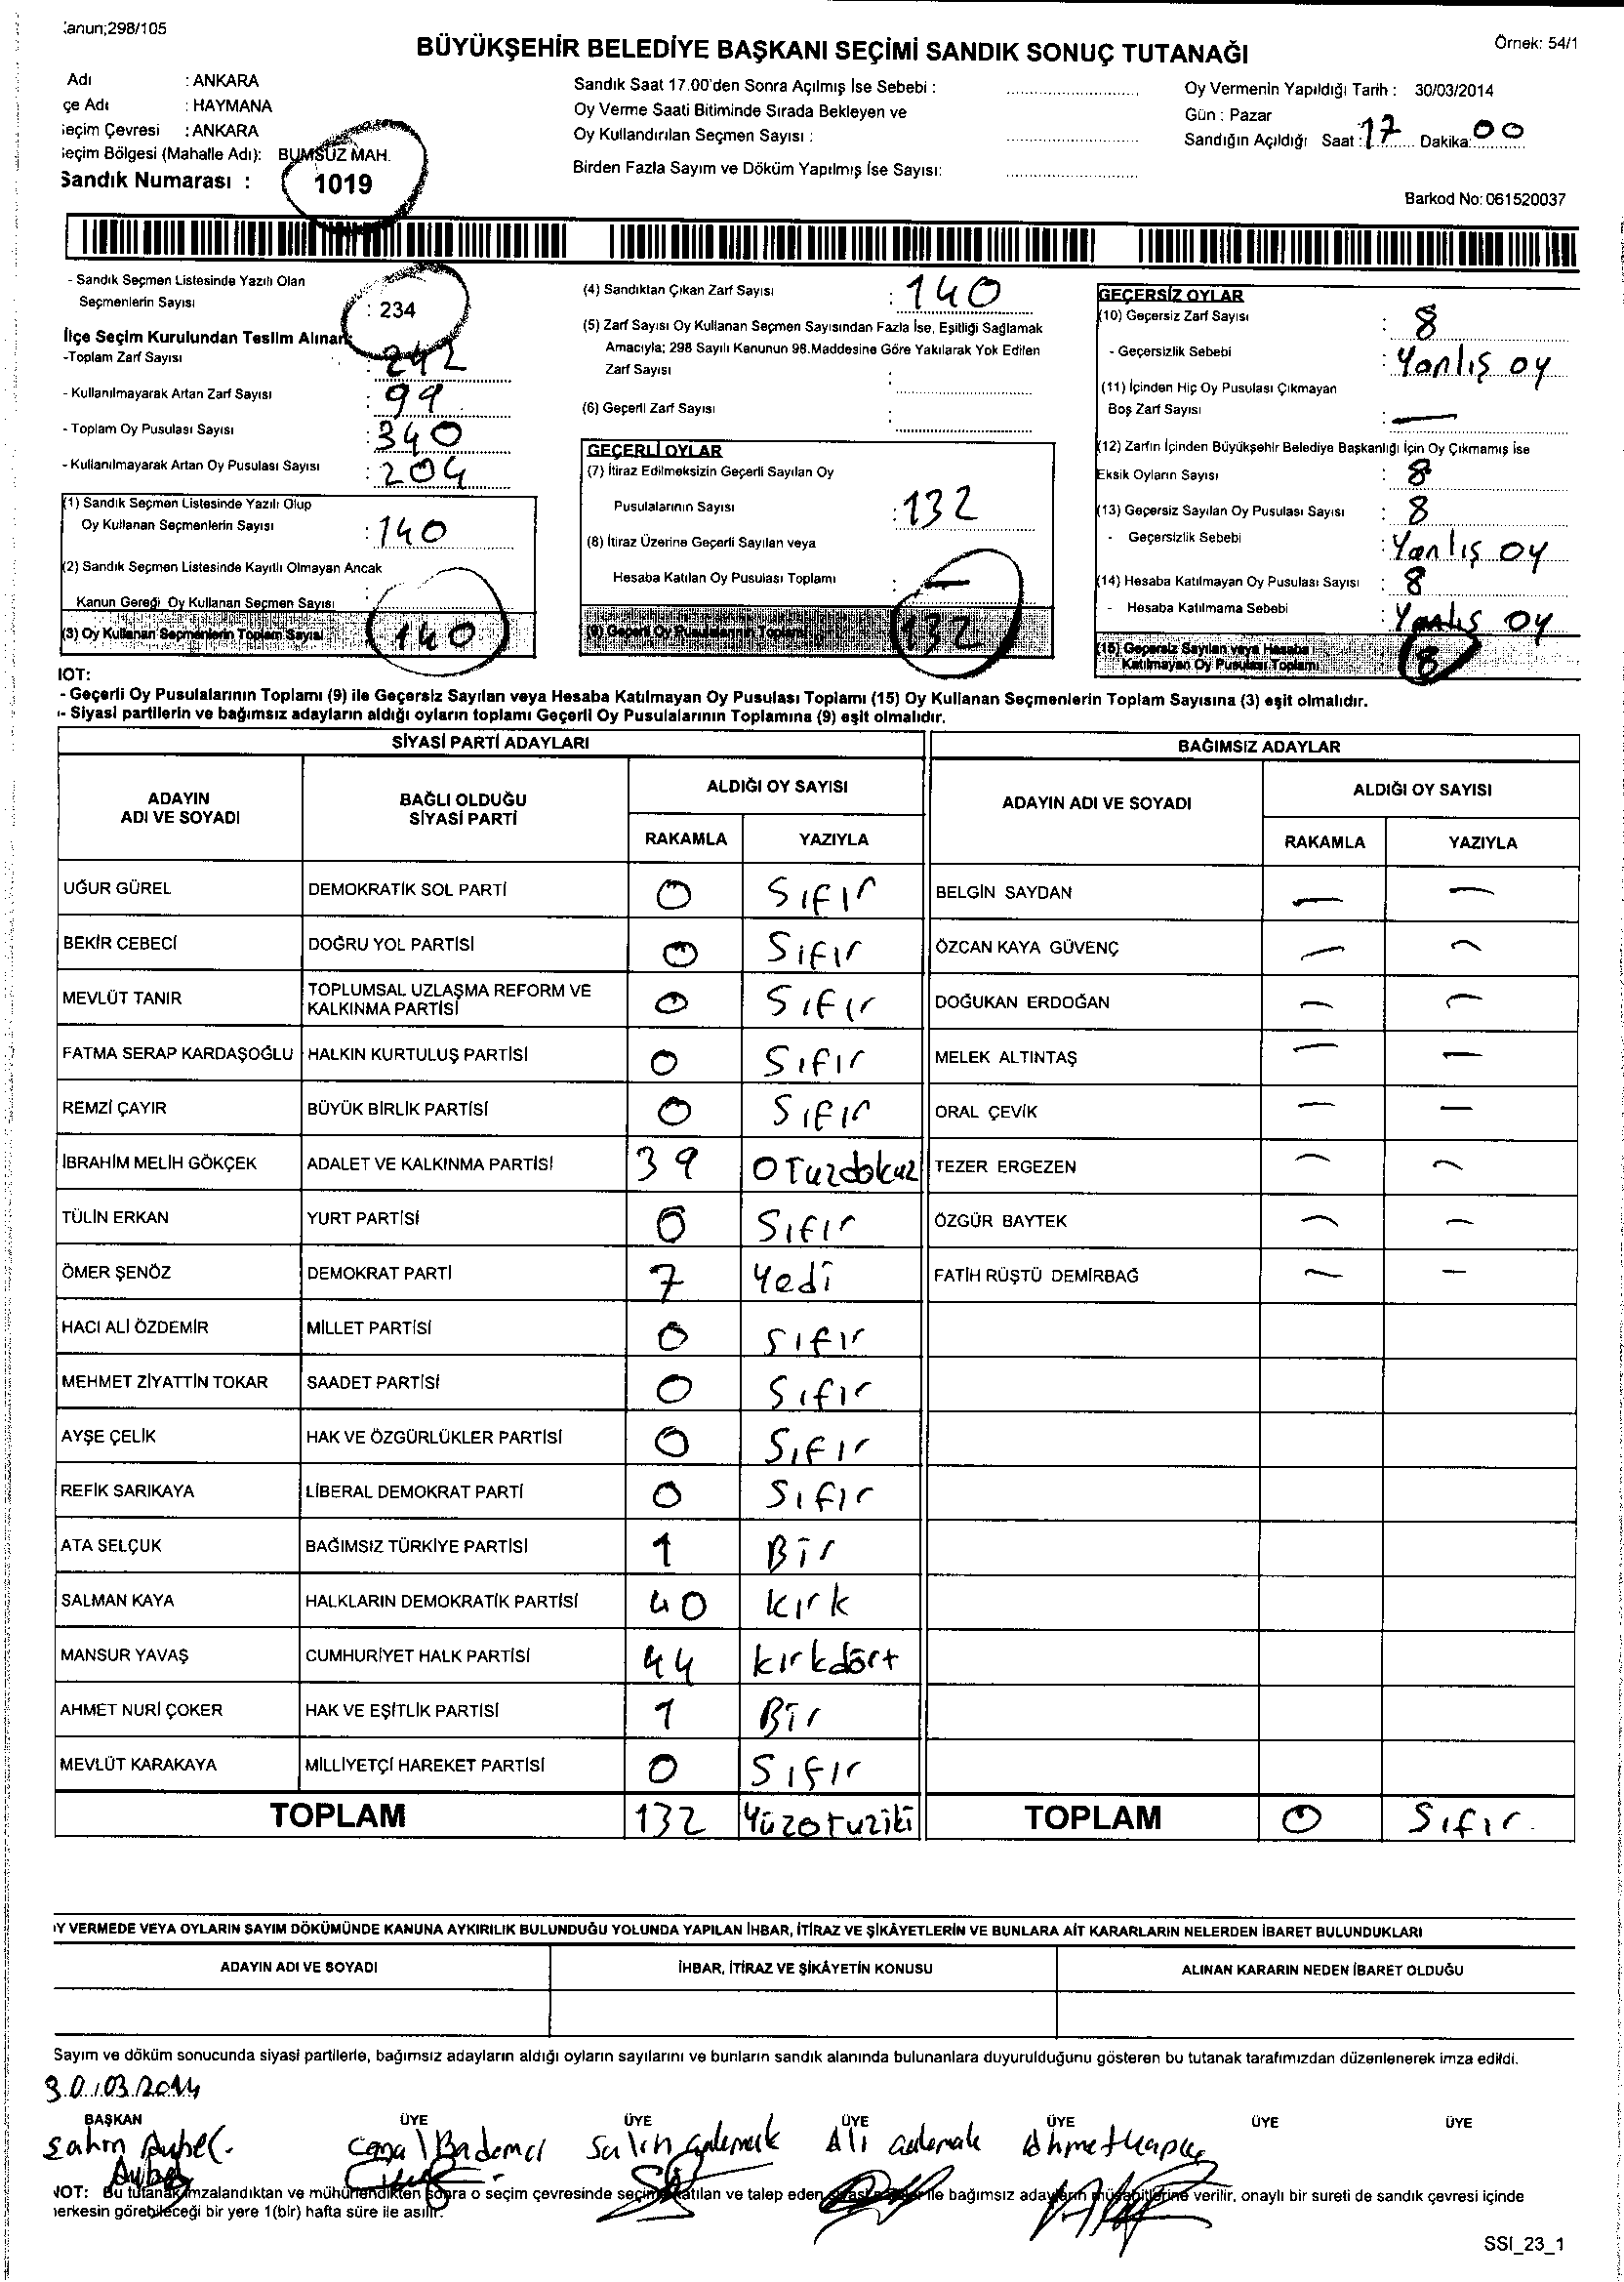 Kanun;298/105
Örnek: 54/1
BÜYÜKŞEHİR BELEDİYE BAŞKANI SEÇİMİ SANDIK SONUÇ TUTANAĞI
Adı : ANKARA
çe Adı : HAYMANA
eçim Çevresi : ANKARA
eçim Bölgesi (Mahalle Adı): BUMSUZ MAH.
Sandık Numarası : 1019
Sandık Saat 17.00'den Sonra Açılmış İse Sebebi :
Oy Verme Saati Bitiminde Sırada Bekleyen ve
Oy Kullandırılan Seçmen Sayısı :
Birden Fazla Sayım ve Döküm Yapılmış İse Sayısı:
Oy Vermenin Yapıldığı Tarih : 30/03/2014
Gün : Pazar
Sandığın Açıldığı Saat : 17 Dakika: 00
Barkod No: 061520037
- Sandık Seçmen Listesinde Yazılı Olan
Seçmenlerin Sayısı : 234
İlçe Seçim Kurulundan Teslim Alınan
-Toplam Zarf Sayısı : 242
- Kullanılmayarak Artan Zarf Sayısı : 99
- Toplam Oy Pusulası Sayısı : 340
- Kullanılmayarak Artan Oy Pusulası Sayısı : 204
(1) Sandık Seçmen Listesinde Yazılı Olup
Oy Kullanan Seçmenlerin Sayısı : 140
(2) Sandık Seçmen Listesinde Kayıtlı Olmayan Ancak
Kanun Gereği Oy Kullanan Seçmen Sayısı :
(3) Oy Kullanan Seçmenlerin Toplam Sayısı 140
(4) Sandıktan Çıkan Zarf Sayısı : 140
(5) Zarf Sayısı Oy Kullanan Seçmen Sayısından Fazla İse, Eşitliği Sağlamak
Amacıyla; 298 Sayılı Kanunun 98.Maddesine Göre Yakılarak Yok Edilen
Zarf Sayısı :
(6) Geçerli Zarf Sayısı :
GEÇERLİ OYLAR
(7) İtiraz Edilmeksizin Geçerli Sayılan Oy
Pusulalarının Sayısı : 132
(8) İtiraz Üzerine Geçerli Sayılan veya
Hesaba Katılan Oy Pusulası Toplamı : —
(9) Geçerli Oy Pusulalarının Toplamı 132
GEÇERSİZ OYLAR
(10) Geçersiz Zarf Sayısı : 8
- Geçersizlik Sebebi : Yanlış oy
(11) İçinden Hiç Oy Pusulası Çıkmayan
Boş Zarf Sayısı : —
(12) Zarfın İçinden Büyükşehir Belediye Başkanlığı İçin Oy Çıkmamış İse
Eksik Oyların Sayısı : 8
(13) Geçersiz Sayılan Oy Pusulası Sayısı : 8
- Geçersizlik Sebebi : Yanlış oy
(14) Hesaba Katılmayan Oy Pusulası Sayısı : 8
- Hesaba Katılmama Sebebi : Yanlış oy
(15) Geçersiz Sayılan veya Hesaba
Katılmayan Oy Pusulası Toplamı 8
NOT:
- Geçerli Oy Pusulalarının Toplamı (9) ile Geçersiz Sayılan veya Hesaba Katılmayan Oy Pusulası Toplamı (15) Oy Kullanan Seçmenlerin Toplam Sayısına (3) eşit olmalıdır.
- Siyasi partilerin ve bağımsız adayların aldığı oyların toplamı Geçerli Oy Pusulalarının Toplamına (9) eşit olmalıdır.
SİYASİ PARTİ ADAYLARI
ADAYIN ADI VE SOYADI BAĞLI OLDUĞU SİYASİ PARTİ ALDIĞI OY SAYISI
RAKAMLA YAZIYLA
UĞUR GÜREL DEMOKRATİK SOL PARTİ 0 Sıfır
BEKİR CEBECİ DOĞRU YOL PARTİSİ 0 Sıfır
MEVLÜT TANIR TOPLUMSAL UZLAŞMA REFORM VE KALKINMA PARTİSİ 0 Sıfır
FATMA SERAP KARDAŞOĞLU HALKIN KURTULUŞ PARTİSİ 0 Sıfır
REMZİ ÇAYIR BÜYÜK BİRLİK PARTİSİ 0 Sıfır
İBRAHİM MELİH GÖKÇEK ADALET VE KALKINMA PARTİSİ 39 Otuzdokuz
TÜLİN ERKAN YURT PARTİSİ 0 Sıfır
ÖMER ŞENÖZ DEMOKRAT PARTİ 7 Yedi
HACI ALİ ÖZDEMİR MİLLET PARTİSİ 0 Sıfır
MEHMET ZİYATTİN TOKAR SAADET PARTİSİ 0 Sıfır
AYŞE ÇELİK HAK VE ÖZGÜRLÜKLER PARTİSİ 0 Sıfır
REFİK SARIKAYA LİBERAL DEMOKRAT PARTİ 0 Sıfır
ATA SELÇUK BAĞIMSIZ TÜRKİYE PARTİSİ 1 Bir
SALMAN KAYA HALKLARIN DEMOKRATİK PARTİSİ 40 Kırk
MANSUR YAVAŞ CUMHURİYET HALK PARTİSİ 44 kırkdört
AHMET NURİ ÇOKER HAK VE EŞİTLİK PARTİSİ 1 Bir
MEVLÜT KARAKAYA MİLLİYETÇİ HAREKET PARTİSİ 0 Sıfır
TOPLAM 132 Yüzotuziki
BAĞIMSIZ ADAYLAR
ADAYIN ADI VE SOYADI ALDIĞI OY SAYISI
RAKAMLA YAZIYLA
BELGİN SAYDAN — —
ÖZCAN KAYA GÜVENÇ — —
DOĞUKAN ERDOĞAN — —
MELEK ALTINTAŞ — —
ORAL ÇEVİK — —
TEZER ERGEZEN — —
ÖZGÜR BAYTEK — —
FATİH RÜŞTÜ DEMİRBAĞ — —
TOPLAM 0 Sıfır.
OY VERMEDE VEYA OYLARIN SAYIM DÖKÜMÜNDE KANUNA AYKIRILIK BULUNDUĞU YOLUNDA YAPILAN İHBAR, İTİRAZ VE ŞİKÂYETLERİN VE BUNLARA AİT KARARLARIN NELERDEN İBARET BULUNDUKLARI
ADAYIN ADI VE SOYADI İHBAR, İTİRAZ VE ŞİKÂYETİN KONUSU ALINAN KARARIN NEDEN İBARET OLDUĞU
Sayım ve döküm sonucunda siyasi partilerle, bağımsız adayların aldığı oyların sayılarını ve bunların sandık alanında bulunanlara duyurulduğunu gösteren bu tutanak tarafımızdan düzenlenerek imza edildi.
30/03/2014
BAŞKAN ÜYE ÜYE ÜYE ÜYE ÜYE ÜYE
Bademci Ali Ahmet
NOT: Bu tutanak imzalandıktan ve mühürlendikten sonra o seçim çevresinde seçime katılan ve talep eden siyasi partiler ile bağımsız adayların müşahitlerine verilir, onaylı bir sureti de sandık çevresi içinde
herkesin görebileceği bir yere 1(bir) hafta süre ile asılır.
SSI_23_1